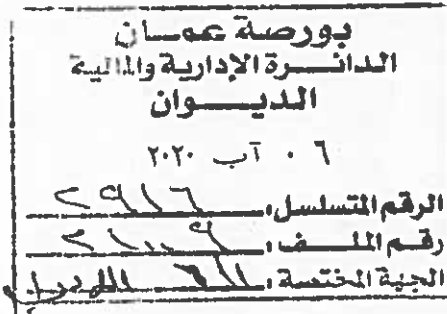 بورصة عمان
الدائرة الإدارية والمالية
الديوان
٠٦ آب ٢٠٢٠
الرقم المتسلسل: ٢٩١٦
رقم الملف:
الجهة المختصة: